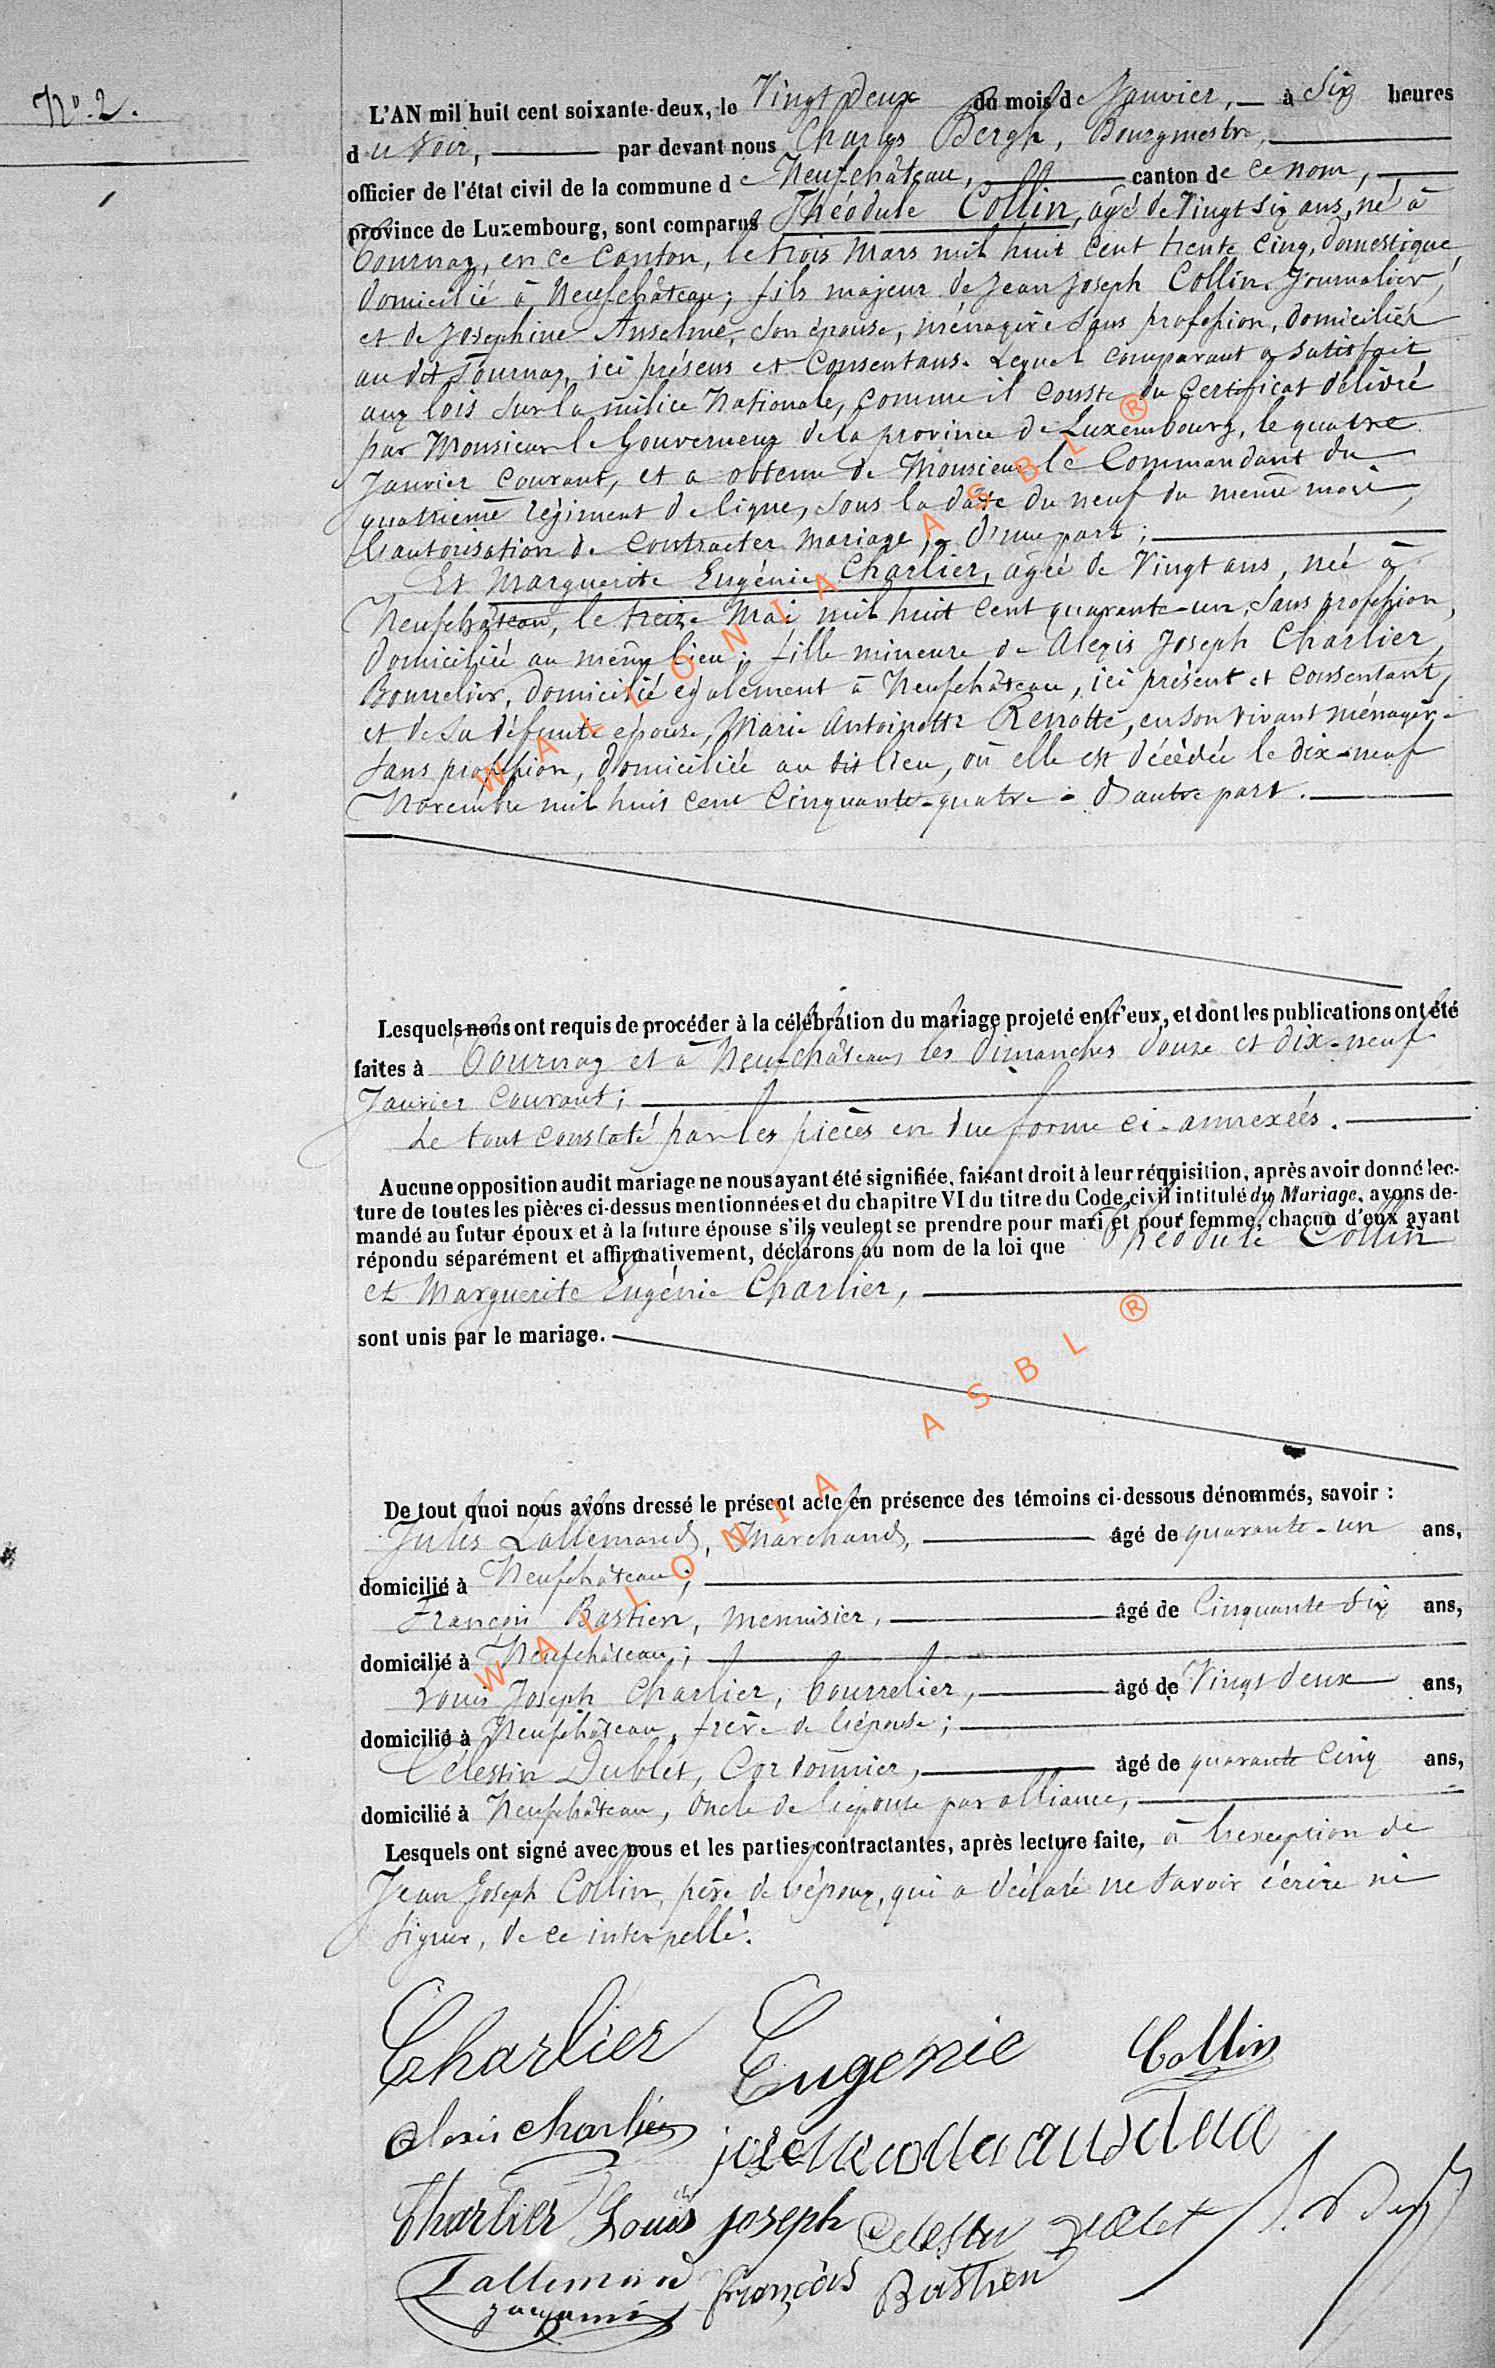 N° 2.
L'AN mil huit cent soixante-deux, le Vingt deux du mois de Janvier, à Six heures
du Soir, par devant nous Charles Bergh, Bourgmestre,
officier de l'état civil de la commune de Neufchâteau, canton de ce nom,
province de Luxembourg, sont comparus Théodule Collin, âgé de Vingt six ans, né à
Tournay, en ce Canton, le trois Mars mil huit cent trente cinq, domestique,
domicilié à Neufchâteau; fils majeur de Jean Joseph Collin, Journalier,
et de Josephine Anselme, son épouse, ménagère sans profession, domiciliés
au dit Tournay, ici présens et Consentans. Lequel comparant a satisfait
aux lois sur la milice Nationale, comme il conste du Certificat délivré
par Monsieur le Gouverneur de la province de Luxembourg, le quatre
Janvier courant, et a obtenu de Monsieur le Commandant du
quatrième régiment de ligne, sous la date du neuf du même mois,
l'autorisation de contracter mariage, d'une part;
Et Marguerite Eugénie Charlier, âgée de Vingt ans, née à
Neufchâteau, le treize Mai mil huit cent quarante-un, sans profession,
domiciliée au même lieu; fille mineure de Alexis Joseph Charlier,
Bourrelier, domicilié également à Neufchâteau, ici présent et consentant,
et de sa défunte épouse, Marie Antoinette Renotte, en son vivant ménagère
sans profession, domiciliée au dit lieu, où elle est décédée le dix-neuf
Novembre mil huit cent cinquante-quatre - d'autre part.
Lesquels nous ont requis de procéder à la célébration du mariage projeté entr'eux, et dont les publications ont été
faites à Tournay et à Neufchâteau les dimanches douze et dix-neuf
Janvier courant;
Le tout constaté par les pièces en due forme ci-annexées.
Aucune opposition audit mariage ne nous ayant été signifiée, faisant droit à leur réquisition, après avoir donné lec-
ture de toutes les pièces ci-dessus mentionnées et du chapitre VI du titre du Code civil intitulé du Mariage, avons de-
mandé au futur époux et à la future épouse s'ils veulent se prendre pour mari et pour femme, chacun d'eux ayant
répondu séparément et affirmativement, déclarons au nom de la loi que Théodule Collin
et Marguerite Eugénie Charlier,
sont unis par le mariage.
De tout quoi nous avons dressé le présent acte en présence des témoins ci-dessous dénommés, savoir :
Jules Lallemand, Marchand, âgé de quarante-un ans,
domicilié à Neufchâteau;
François Bastien, menuisier, âgé de Cinquante six ans,
domicilié à Neufchâteau;
Louis Joseph Charlier, bourrelier, âgé de Vingt deux ans,
domicilié à Neufchâteau, frère de l'épouse;
Célestin Dublet, Cordonnier, âgé de quarante cinq ans,
domicilié à Neufchâteau, oncle de l'épouse par alliance,
Lesquels ont signé avec nous et les parties contractantes, après lecture faite, à l'exception de
Jean Joseph Collin, père de l'époux, qui a déclaré ne savoir écrire ni
signer, de ce interpellé.
Charlier Eugenie Collin
alexis charlier
Charlier Louis joseph Celestin
Lallemand françois Bastien
WALLONIA ASBL ®
WALLONIA ASBL ®